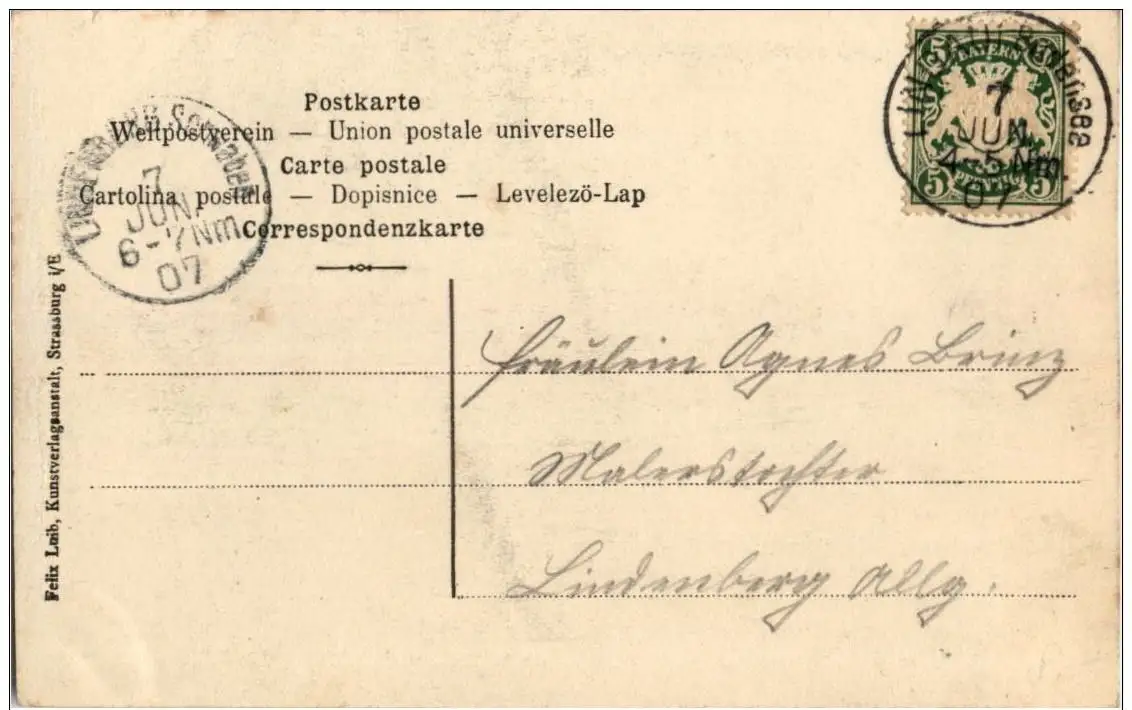 Postkarte
Weltpostverein — Union postale universelle
Carte postale
Cartolina postale — Dopisnice — Levelezö-Lap
Correspondenzkarte
5 BAYERN 5
5 PFENNIG 5
7
JUN.
4-5Nm.
07
LINDENBERG Schwaben
7
JUN.
6-7Nm
07
Felix Luib, Kunstverlagsanstalt, Strassburg i/E
Fräulein Agnes Brinz
Malerstochter
Lindenberg Allg.